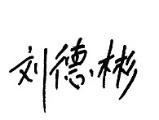 刘德彬